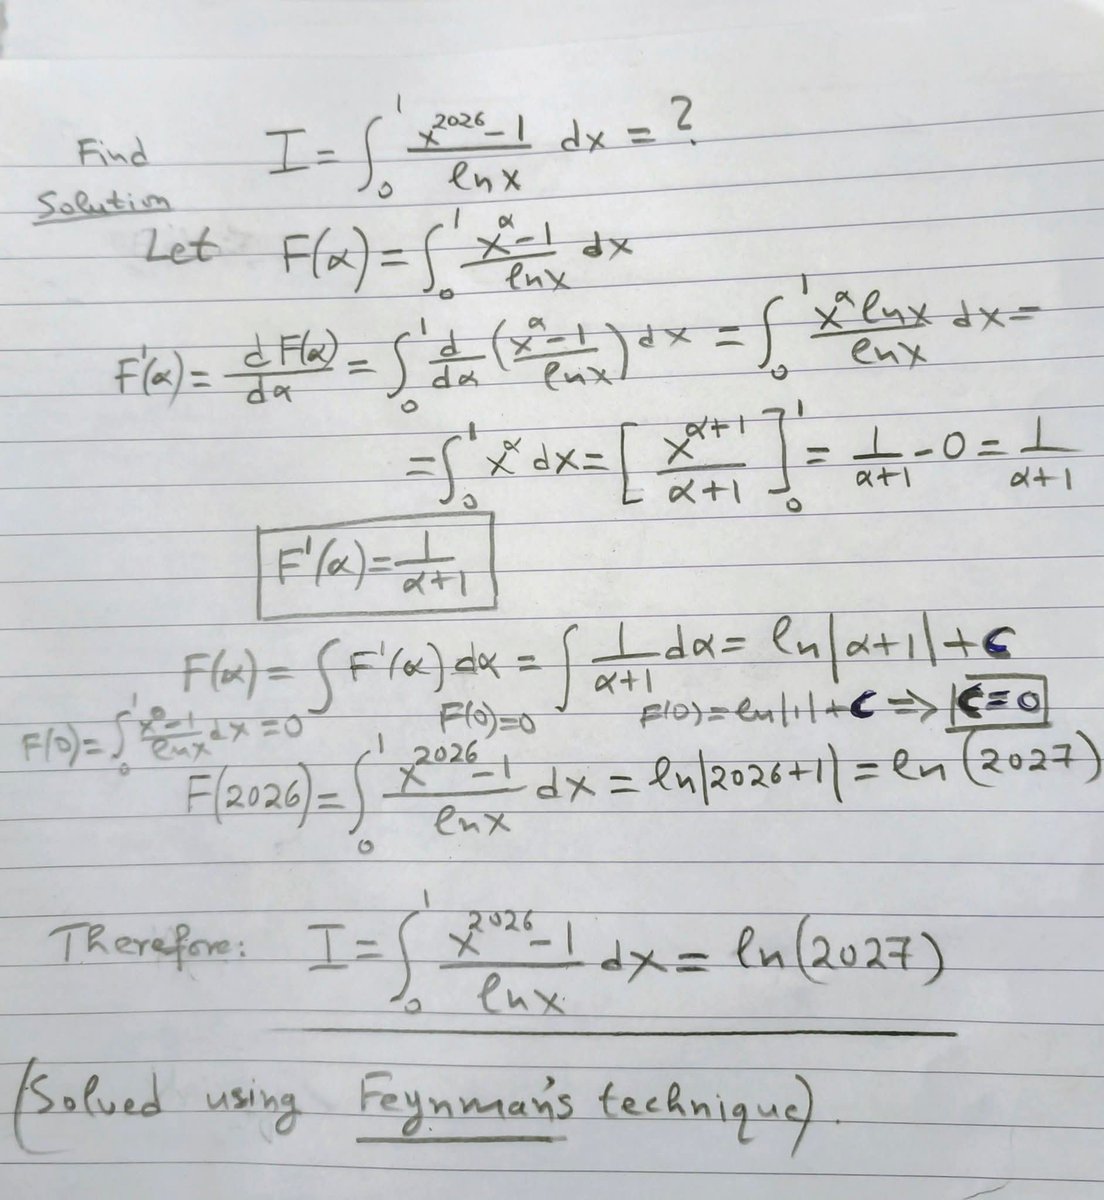 Find I = ∫₀¹ (x^2026 − 1)/(ln x) dx = ?
Solution
Let F(α) = ∫₀¹ (x^α − 1)/(ln x) dx
F'(α) = dF(α)/dα = ∫₀¹ d/dα ((x^α − 1)/(ln x)) dx = ∫₀¹ (x^α ln x)/(ln x) dx =
= ∫₀¹ x^α dx = [x^(α+1)/(α+1)]₀¹ = 1/(α+1) − 0 = 1/(α+1)
F'(α) = 1/(α+1)
F(α) = ∫ F'(α) dα = ∫ 1/(α+1) dα = ln|α+1| + C
F(0) = ∫₀¹ (x^0 − 1)/(ln x) dx = 0 F(0) = 0 F(0) = ln|1| + C ⇒ C = 0
F(2026) = ∫₀¹ (x^2026 − 1)/(ln x) dx = ln|2026+1| = ln (2027)
Therefore: I = ∫₀¹ (x^2026 − 1)/(ln x) dx = ln(2027)
(Solved using Feynman's technique).